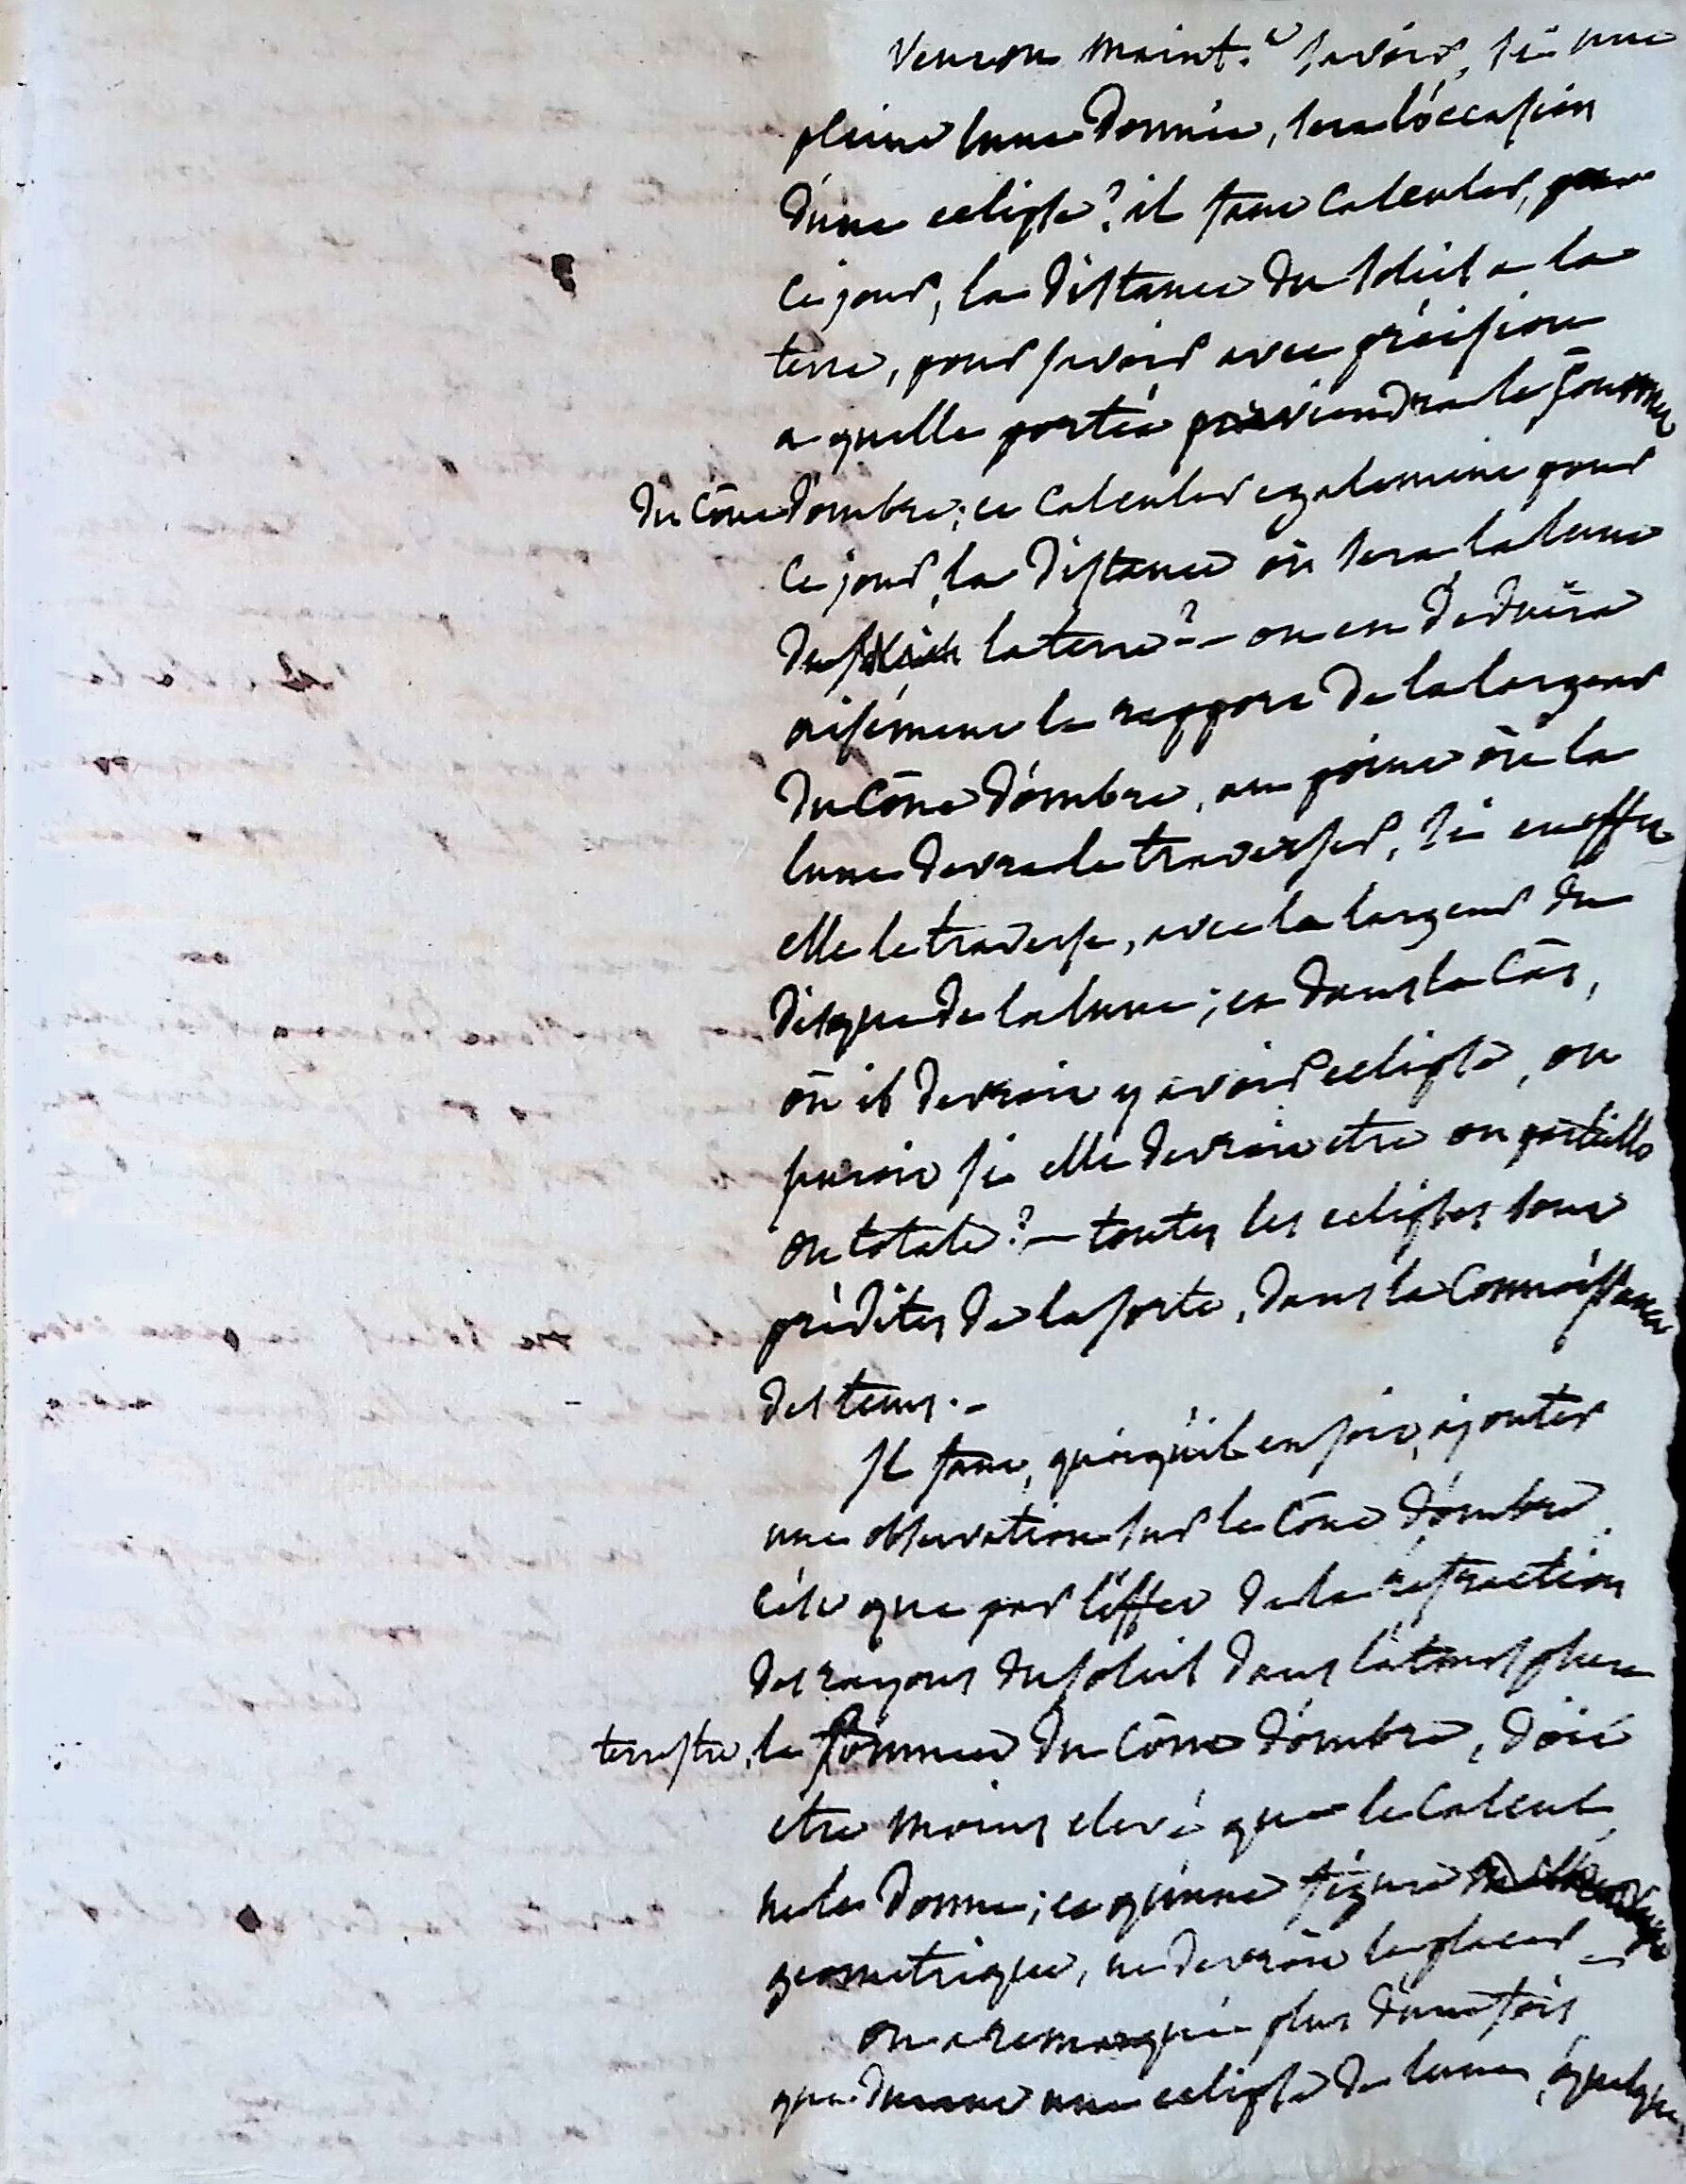 Veut-on maint.t savoir, si une
pleine lune donnée, sera l'occasion
d'une eclipse? il faut calculer, pour
ce jour, la distance du soleil a la
terre, pour savoir avec précision
a quelle portée parviendra le sommet
du Cône d'ombre; et calculer egalement pour
ce jour, la distance où sera la lune
de la terre? — on en deduira
aisément le rapport de la largeur
du Cône d'ombre, au point où la
lune devra le traverser, si en effet
elle le traverse, avec la largeur du
disque de la lune; et dans le Cas,
où il devroit y avoir eclipse, on
sauroit si elle devroit etre ou partielle
ou totale? — toutes les eclipses sont
prédites de la sorte, dans la Connoissance
des tems. —
Il faut, quoiqu'il en soit, ajouter
une observation sur le Cône d'ombre
c'est que par l'effet de la réfraction
des rayons du soleil dans l'atmosphere
terrestre, le sommet du Cône d'ombre, doit
etre moins elevé que le Calcul
ne le donne; et qu'une figure
geometrique, ne devroit le placer —
on a remarqué plus d'une fois
que durant une eclipse de lune, quelque